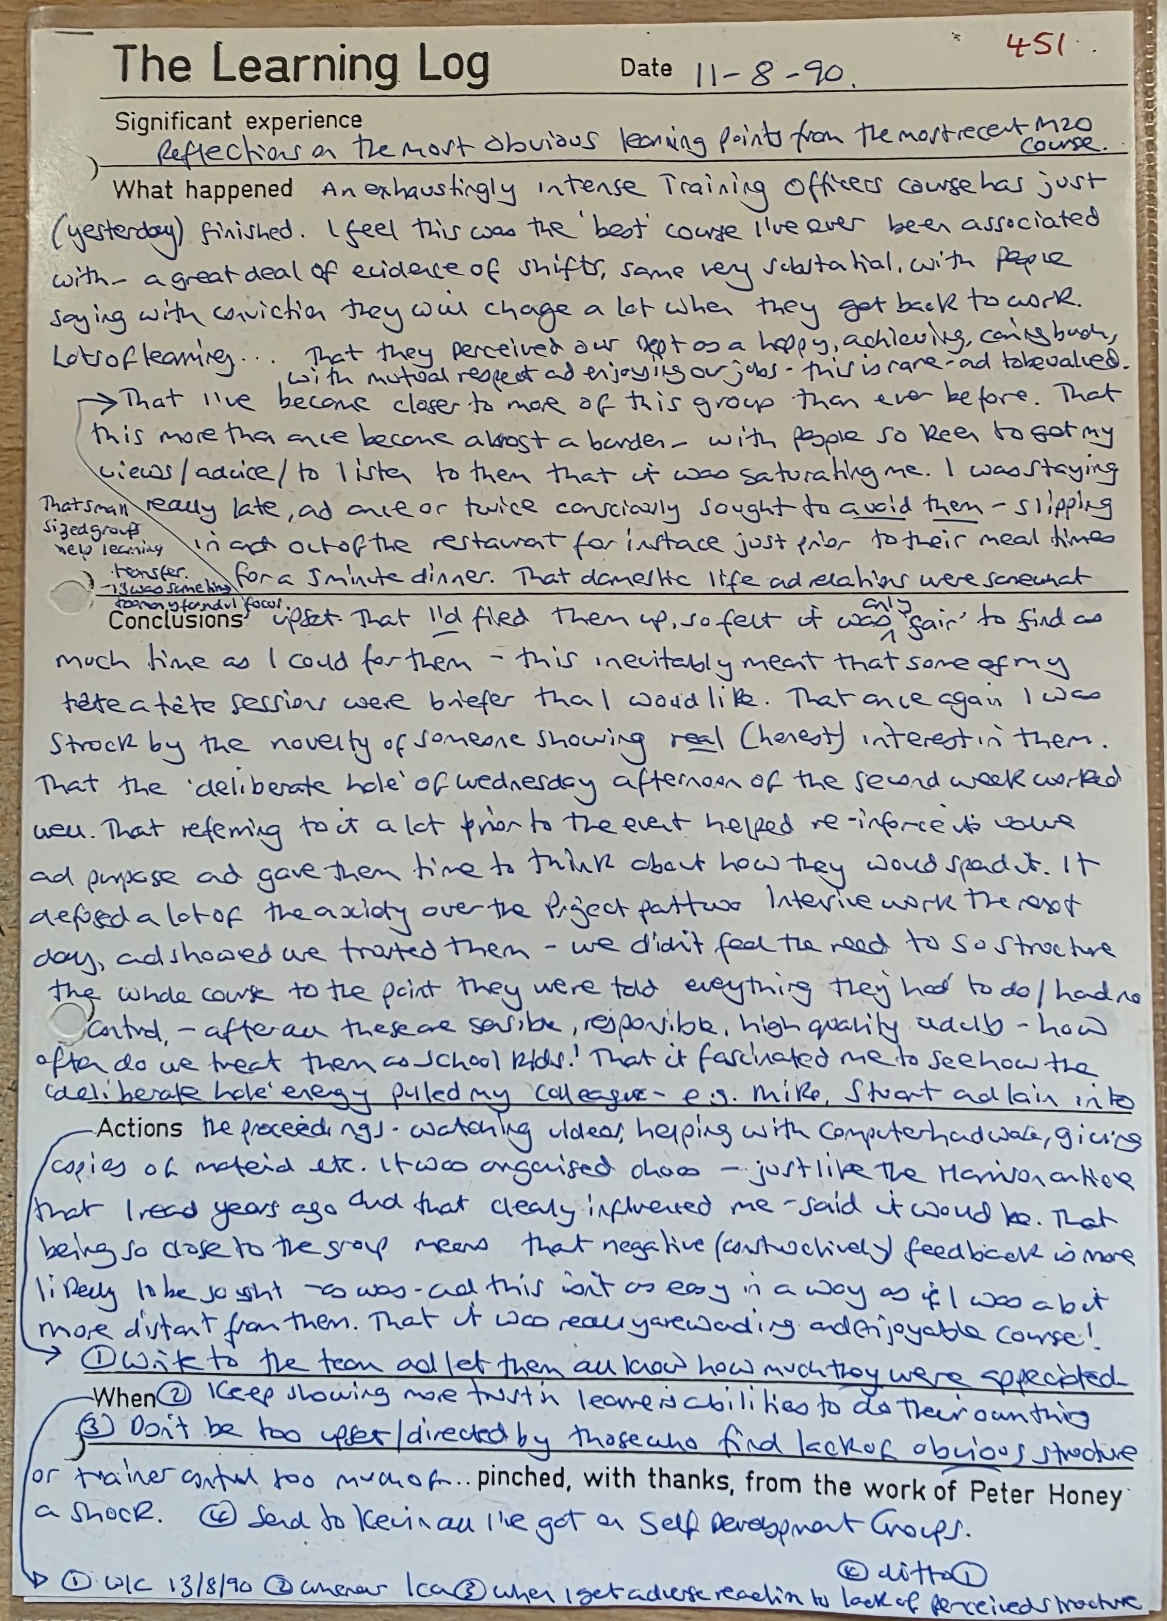 451
The Learning Log Date 11-8-90.
Significant experience
Reflections on the most obvious learning points from the most recent M20
course.
What happened An exhaustingly intense Training Officers course has just
(yesterday) finished. I feel this was the 'best' course I've ever been associated
with - a great deal of evidence of shifts, some very substantial, with people
saying with conviction they will change a lot when they get back to work.
Lots of learning... That they perceived our Dept as a happy, achieving, caring bunch,
with mutual respect ad enjoying our jobs - this is rare - ad to be valued.
That I've become closer to more of this group than ever before. That
this more than once became almost a burden - with people so keen to get my
views/advice/to listen to them that it was saturating me. I was staying
really late, ad once or twice consciously sought to avoid them - slipping
in and out of the restaurant for instace just prior to their meal times
for a 5 minute dinner. That domestic life ad relations were somewhat
That small
sized groups
help learning
transfer.
- is was something
Conclusions upset. That I'd fired them up, so felt it was only 'fair' to find as
much time as I could for them - this inevitably meant that some of my
tête a tête sessions were briefer than I would like. That once again I was
struck by the novelty of someone showing real (honest) interest in them.
That the 'deliberate hole' of Wednesday afternoon of the second week worked
well. That referring to it a lot prior to the event helped re-inforce its value
ad purpose ad gave them time to think about how they would spend it. It
defused a lot of the anxiety over the Project part two Intensive work the next
day, ad showed we trusted them - we didn't feel the need to so structure
the whole course to the point they were told everything they had to do/had no
control, - after all these are sensible, responsible, high quality adults - how
often do we treat them as school kids! That it fascinated me to see how the
'deliberate hole' energy pulled my colleagues - e.g. Mike, Stuart ad Iain into
Actions the proceedings - watching videos, helping with computer hardware, giving
copies of material etc. It was organised chaos - just like the Harrison article
that I read years ago and that clearly influenced me - said it would be. That
being so close to the group means that negative (constructively) feedback is more
likely to be sought - as was - ad this isn't as easy in a way as if I was a bit
more distant from them. That it was really rewarding and enjoyable course!
① Write to the team ad let them all know how much they were appreciated
When ② Keep showing more trust in learners abilities to do their own thing
③ Don't be too upset/directed by those who find lack of obvious structure
or trainer control too much of.. pinched, with thanks, from the work of Peter Honey
a shock. ④ Send to Kevin all I've got on Self Development Groups.
④ ditto ①
① W/C 13/8/90 ② whenever I can ③ when I get adverse reaction to lack of perceived structure